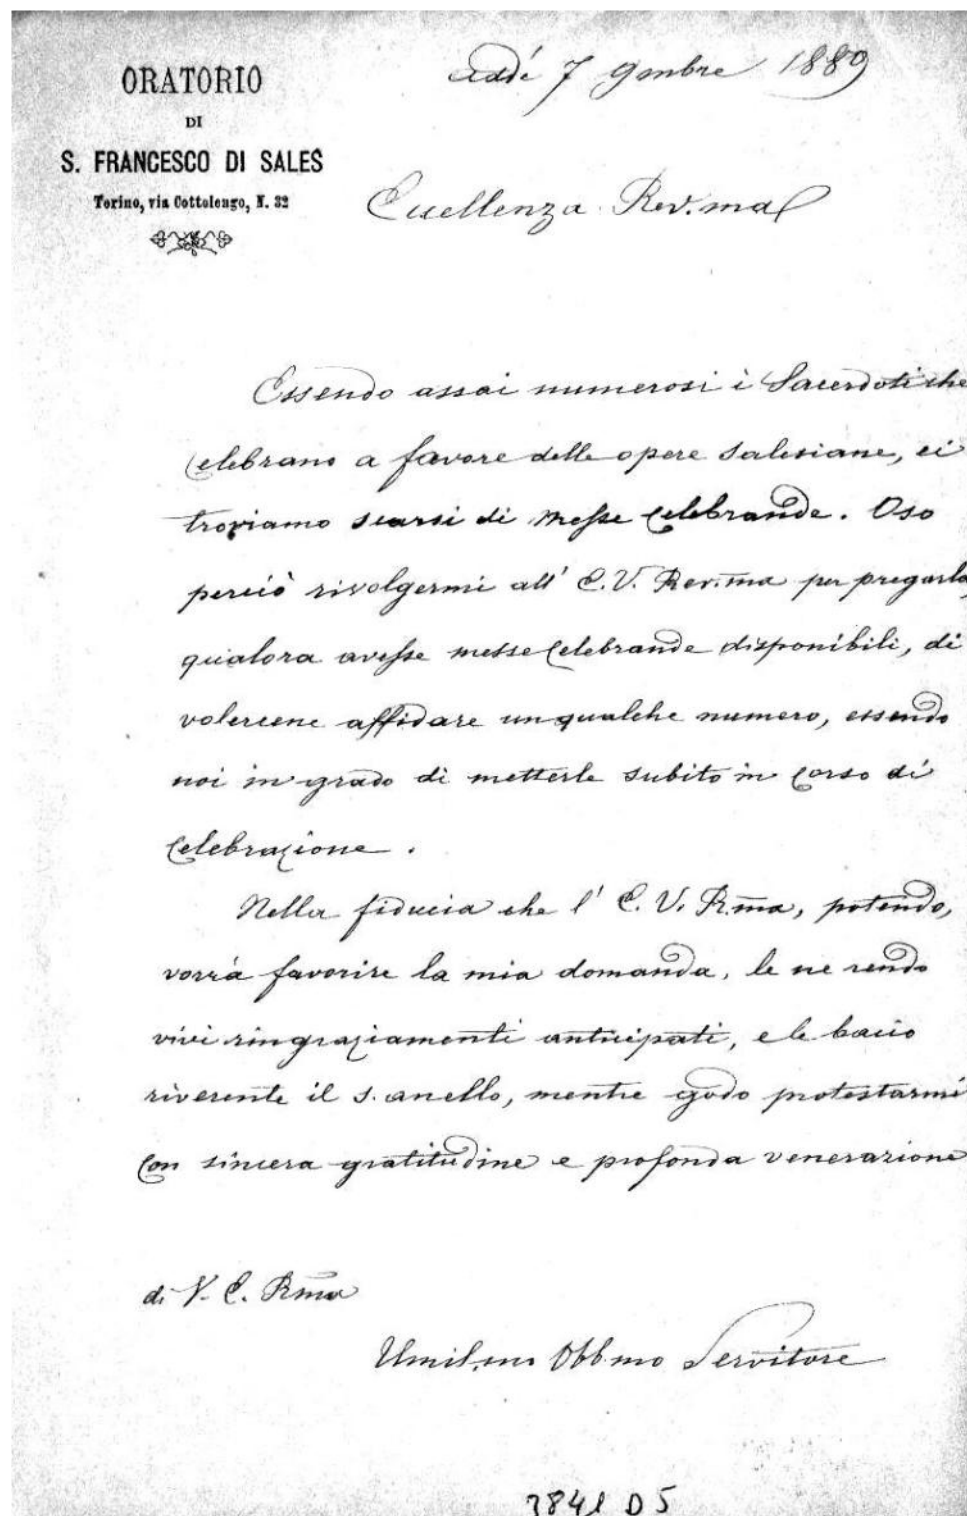 ORATORIO
DI
S. FRANCESCO DI SALES
Torino, via Cottolengo, N. 32
addì 7 9mbre 1889
Eccellenza Rev.ma
Essendo assai numerosi i Sacerdoti che
celebrano a favore delle opere salesiane, ci
troviamo scarsi di messe celebrande. Oso
perciò rivolgermi all' E. V. Rev.ma per pregarla,
qualora avesse messe celebrande disponibili, di
volercene affidare un qualche numero, essendo
noi in grado di metterle subito in corso di
celebrazione.
Nella fiducia che l' E. V. R.ma, potendo,
vorrà favorire la mia domanda, le ne rendo
vivi ringraziamenti anticipati, e le bacio
riverente il s. anello, mentre godo protestarmi
con sincera gratitudine e profonda venerazione
di V. E. Rma
Umil.mo Obb.mo Servitore
D 5